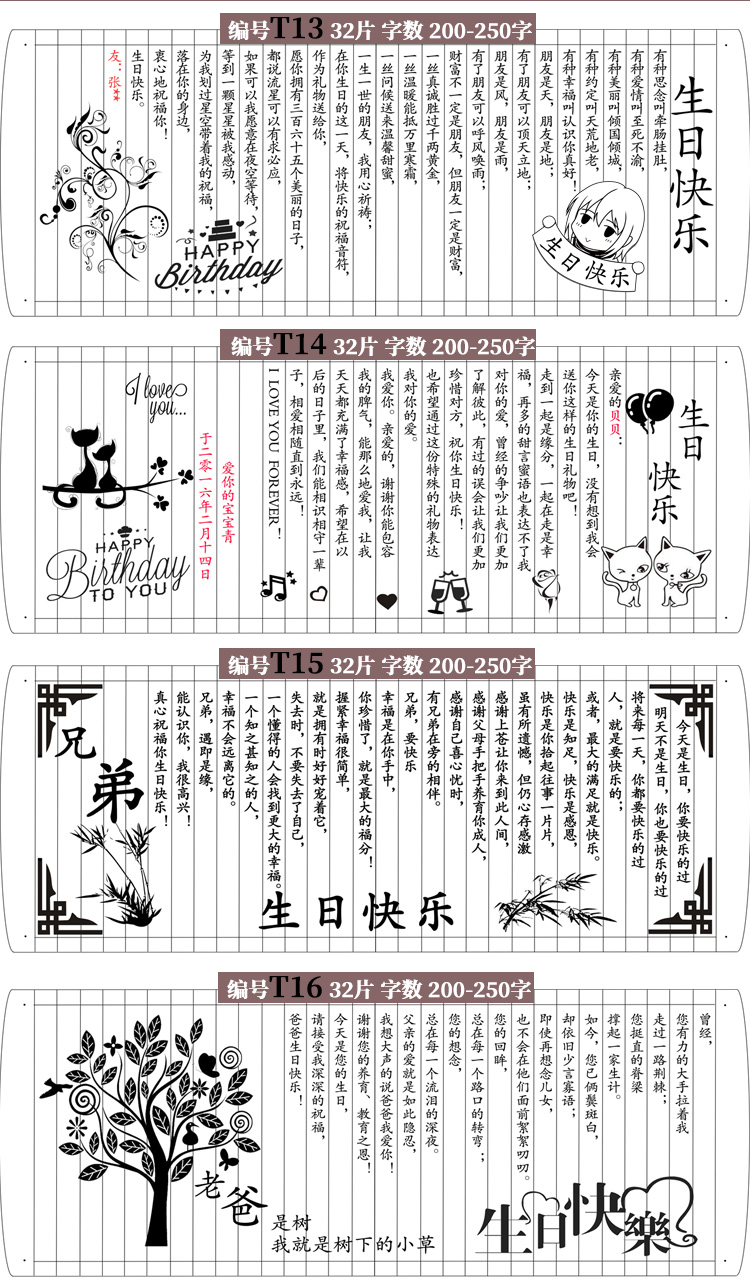 编号T13 32片 字数 200-250字
生日快乐
有种思念叫牵肠挂肚,
有种爱情叫至死不渝,
有种美丽叫倾国倾城,
有种约定叫天荒地老,
有种幸福叫认识你真好!
朋友是天,朋友是地;
有了朋友可以顶天立地;
朋友是风,朋友是雨,
有了朋友可以呼风唤雨;
财富不一定是朋友,但朋友一定是财富,
一丝真诚胜过千两黄金,
一丝温暖能抵万里寒霜,
一丝问候送来温馨甜蜜,
一生一世的朋友,我用心祈祷;
在你生日的这一天,将快乐的祝福音符,
作为礼物送给你,
愿你拥有三百六十五个美丽的日子,
都说流星可以有求必应,
如果可以我愿意在夜空等待,
等到一颗星星被我感动,
为我划过星空带着我的祝福,
落在你的身边,
衷心地祝福你!
生日快乐。
友:张**
生日快乐
HAPPY
Birthday
编号T14 32片 字数 200-250字
生日
快乐
亲爱的贝贝:
今天是你的生日,没有想到我会
送你这样的生日礼物吧!
走到一起是缘分,一起在走是幸
福,再多的甜言蜜语也表达不了我
对你的爱,曾经的争吵让我们更加
了解彼此,有过的误会让我们更加
珍惜对方,祝你生日快乐!
也希望通过这份特殊的礼物表达
我对你的爱。
我爱你。亲爱的,谢谢你能包容
我的脾气,能那么地爱我,让我
天天都充满了幸福感,希望在以
后的日子里,我们能相识相守一辈
子,相爱相随直到永远!
I LOVE YOU FOREVER!
爱你的宝宝青
于二零一六年二月十四日
I love
you...
HAPPY
Birthday
TO YOU
编号T15 32片 字数 200-250字
今天是生日,你要快乐的过
明天不是生日,你也要快乐的过
将来每一天,你都要快乐的过
人,就是要快乐的;
或者,最大的满足就是快乐。
快乐是知足,快乐是感恩,
快乐是你拾起往事一片片,
虽有所遗憾,但仍心存感激
感谢上苍让你来到此人间,
感谢父母手把手养育你成人,
感谢自己喜心忧时,
有兄弟在旁的相伴。
兄弟,要快乐
幸福是在你手中,
你珍惜了,就是最大的福分!
握紧幸福很简单,
就是拥有时好好宠着它,
失去时,不要失去了自己,
一个懂得的人会找到更大的幸福。
一个知之甚知之的人,
幸福不会远离它的。
兄弟,遇即是缘,
能认识你,我很高兴!
真心祝福你生日快乐!
兄弟
生日快乐
编号T16 32片 字数 200-250字
曾经,
您有力的大手拉着我
走过一路荆棘;
您挺直的脊梁
撑起一家生计。
如今,您已俩鬓斑白,
却依旧少言寡语;
即使再想念儿女,
也不会在他们面前絮絮叨叨。
您的回眸,
总在每一个路口的转弯;
您的想念,
总在每一个流泪的深夜。
父亲的爱就是如此隐忍,
我想大声的说爸爸我爱你!
谢谢您的养育、教育之恩!
今天是您的生日,
请接受我深深的祝福,
爸爸生日快乐!
老爸
是树
我就是树下的小草
生日快樂